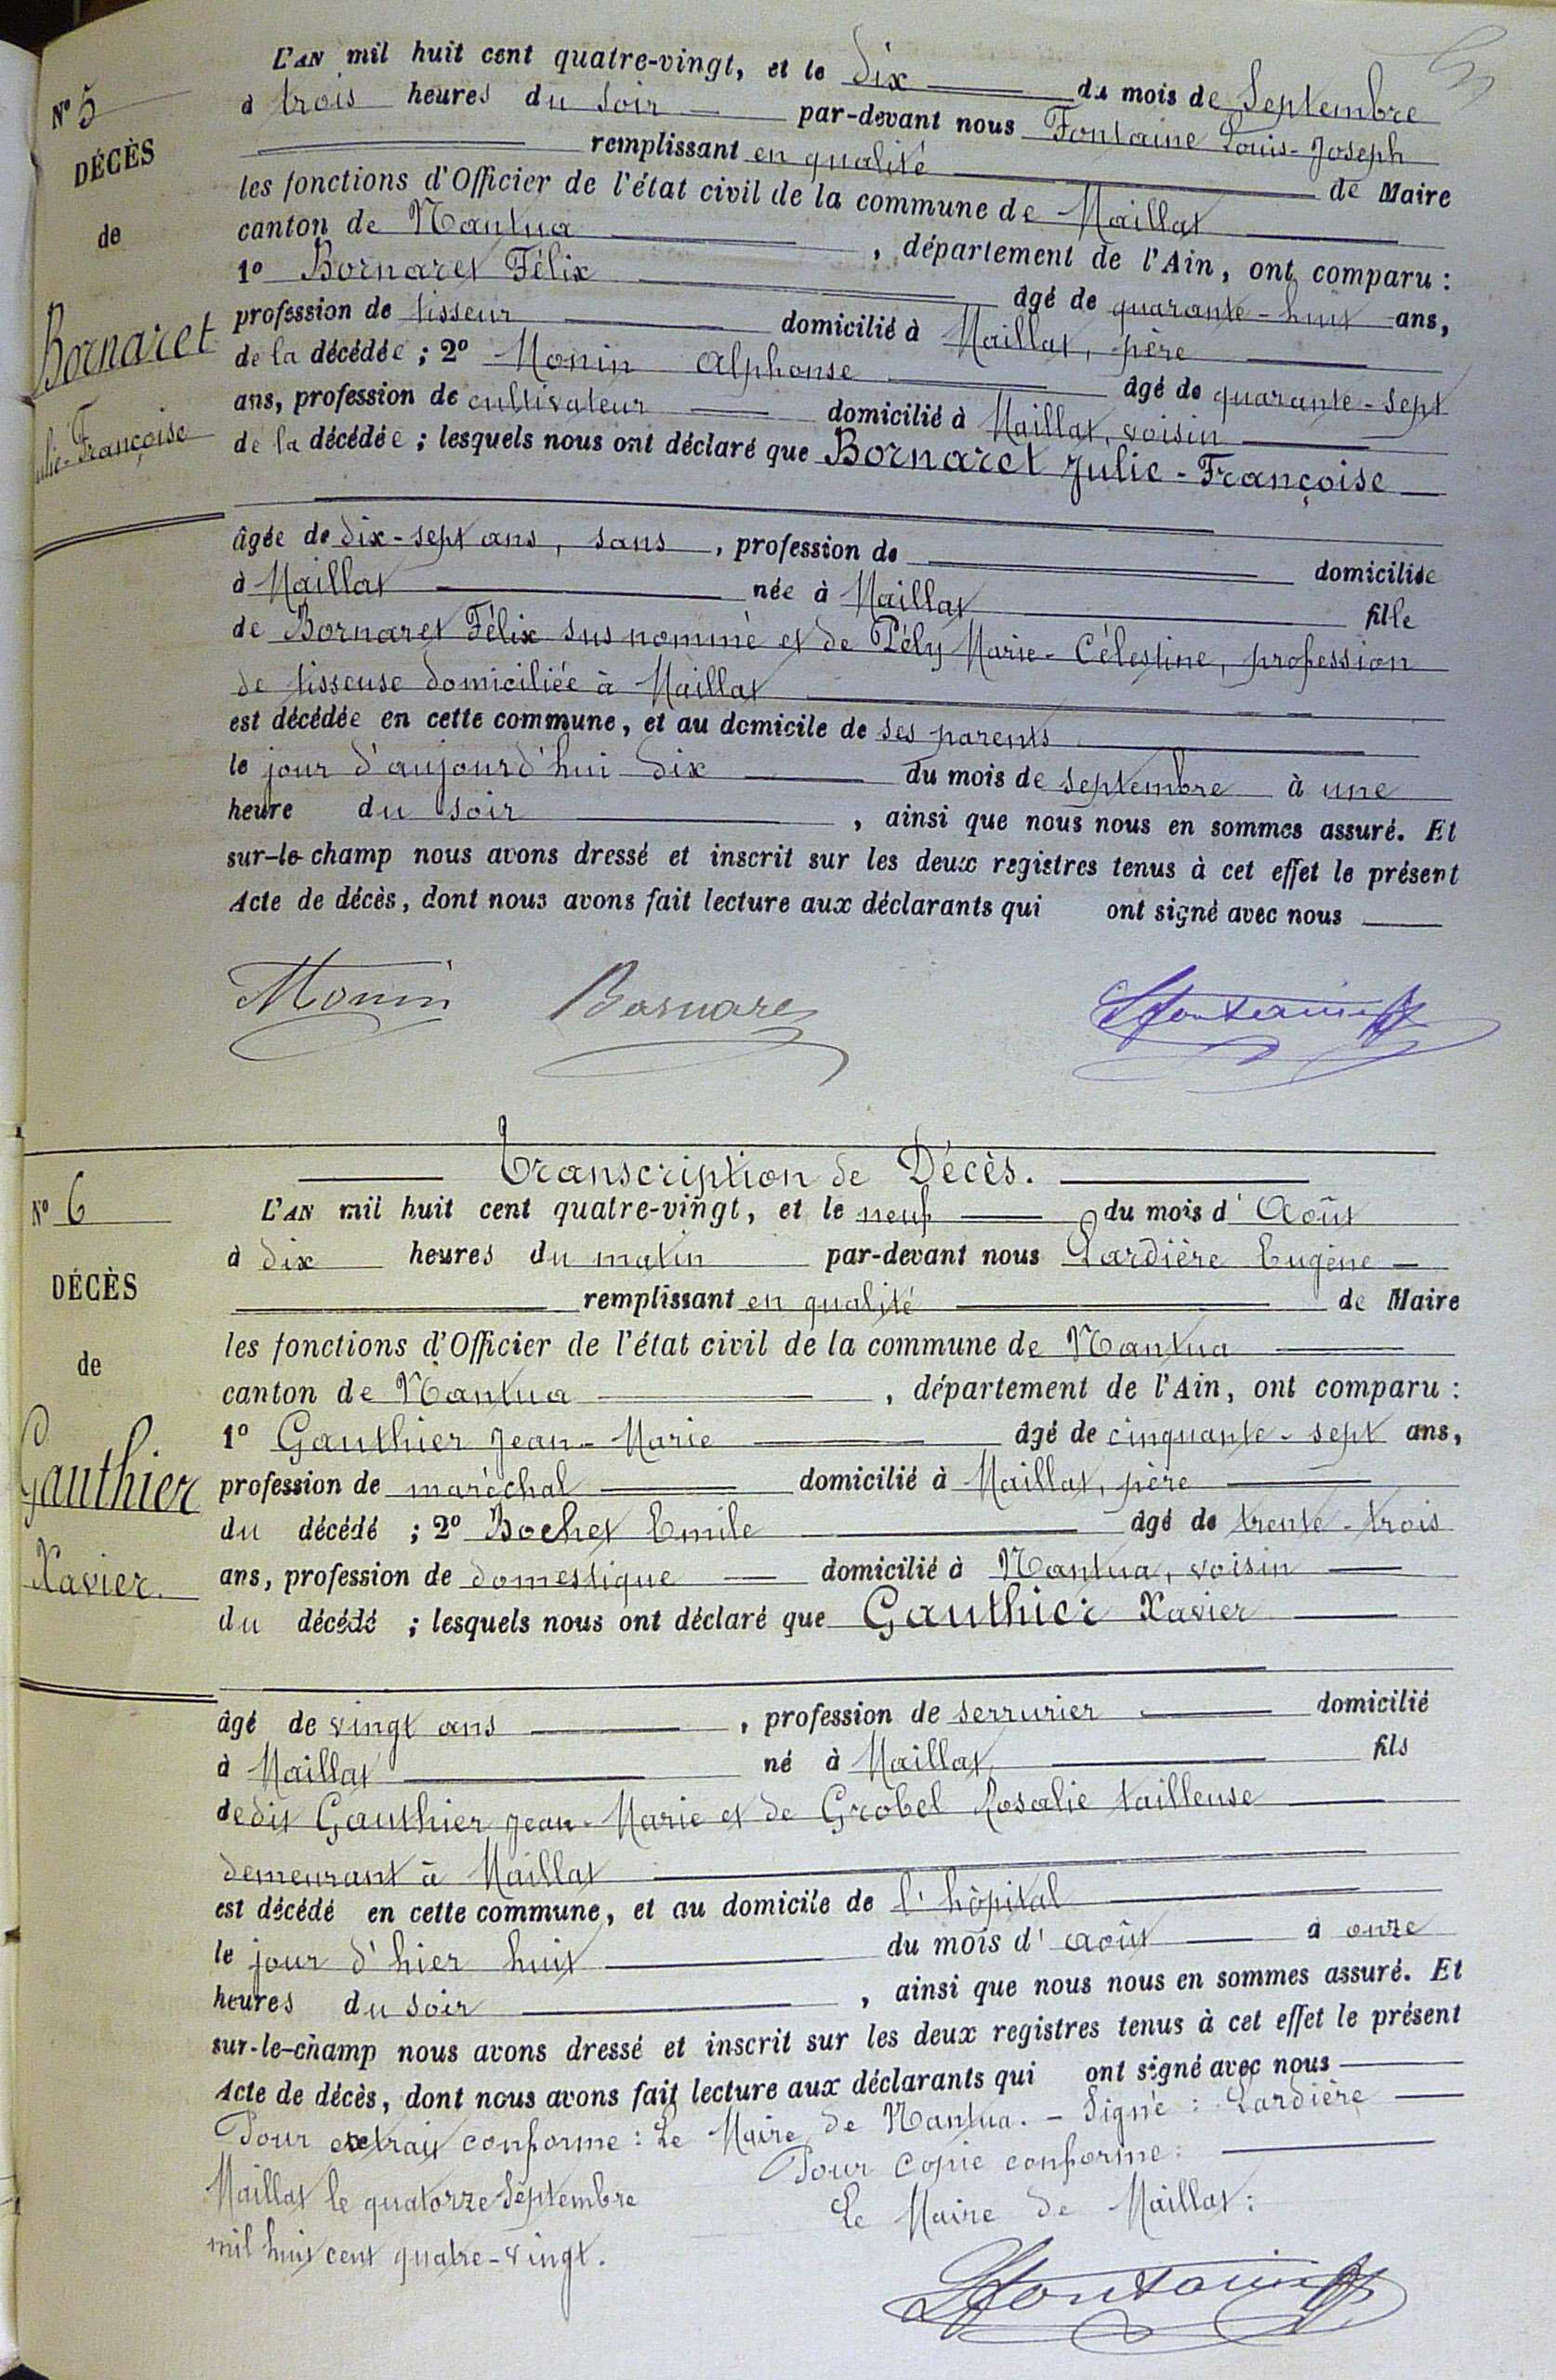 L'AN mil huit cent quatre-vingt, et le dix du mois de Septembre
N° 5
à trois heures du soir par-devant nous Fontaine Louis-Joseph
DÉCÈS
remplissant en qualité de Maire
les fonctions d'Officier de l'état civil de la commune de Maillat
de
canton de Nantua, département de l'Ain, ont comparu :
1° Bornaret Félix âgé de quarante-huit ans,
Bornaret
profession de tisseur domicilié à Maillat, père
de la décédée ; 2° Monin Alphonse âgé de quarante-sept
Julie-Françoise
ans, profession de cultivateur domicilié à Maillat, voisin
de la décédée ; lesquels nous ont déclaré que Bornaret Julie-Françoise
âgée de dix-sept ans, sans, profession de domiciliée
à Maillat née à Maillat fille
de Bornaret Félix sus nommé et de Pély Marie-Célestine, profession
de tisseuse domiciliée à Maillat
est décédée en cette commune, et au domicile de ses parents
le jour d'aujourd'hui dix du mois de septembre à une
heure du soir, ainsi que nous nous en sommes assuré. Et
sur-le-champ nous avons dressé et inscrit sur les deux registres tenus à cet effet le présent
Acte de décès, dont nous avons fait lecture aux déclarants qui ont signé avec nous
Monin Bornaret LJFontaine
Transcription de Décès.
N° 6
L'AN mil huit cent quatre-vingt, et le neuf du mois d'Août
à dix heures du matin par-devant nous Lardière Eugène
DÉCÈS
remplissant en qualité de Maire
les fonctions d'Officier de l'état civil de la commune de Nantua
de
canton de Nantua, département de l'Ain, ont comparu :
1° Gauthier Jean-Marie âgé de cinquante-sept ans,
Gauthier
profession de maréchal domicilié à Maillat, père
du décédé ; 2° Bochet Emile âgé de trente-trois
Xavier.
ans, profession de domestique domicilié à Nantua, voisin
du décédé ; lesquels nous ont déclaré que Gauthier Xavier
âgé de vingt ans, profession de serrurier domicilié
à Maillat né à Maillat fils
de dit Gauthier Jean-Marie et de Grobel Rosalie tailleuse
demeurant à Maillat
est décédé en cette commune, et au domicile de l'hôpital
le jour d'hier huit du mois d'août à onze
heures du soir, ainsi que nous nous en sommes assuré. Et
sur-le-champ nous avons dressé et inscrit sur les deux registres tenus à cet effet le présent
Acte de décès, dont nous avons fait lecture aux déclarants qui ont signé avec nous
Pour extrait conforme : Le Maire de Nantua. - Signé : Lardière
Pour copie conforme :
Maillat le quatorze Septembre
Le Maire de Maillat :
mil huit cent quatre-vingt.
LJFontaine